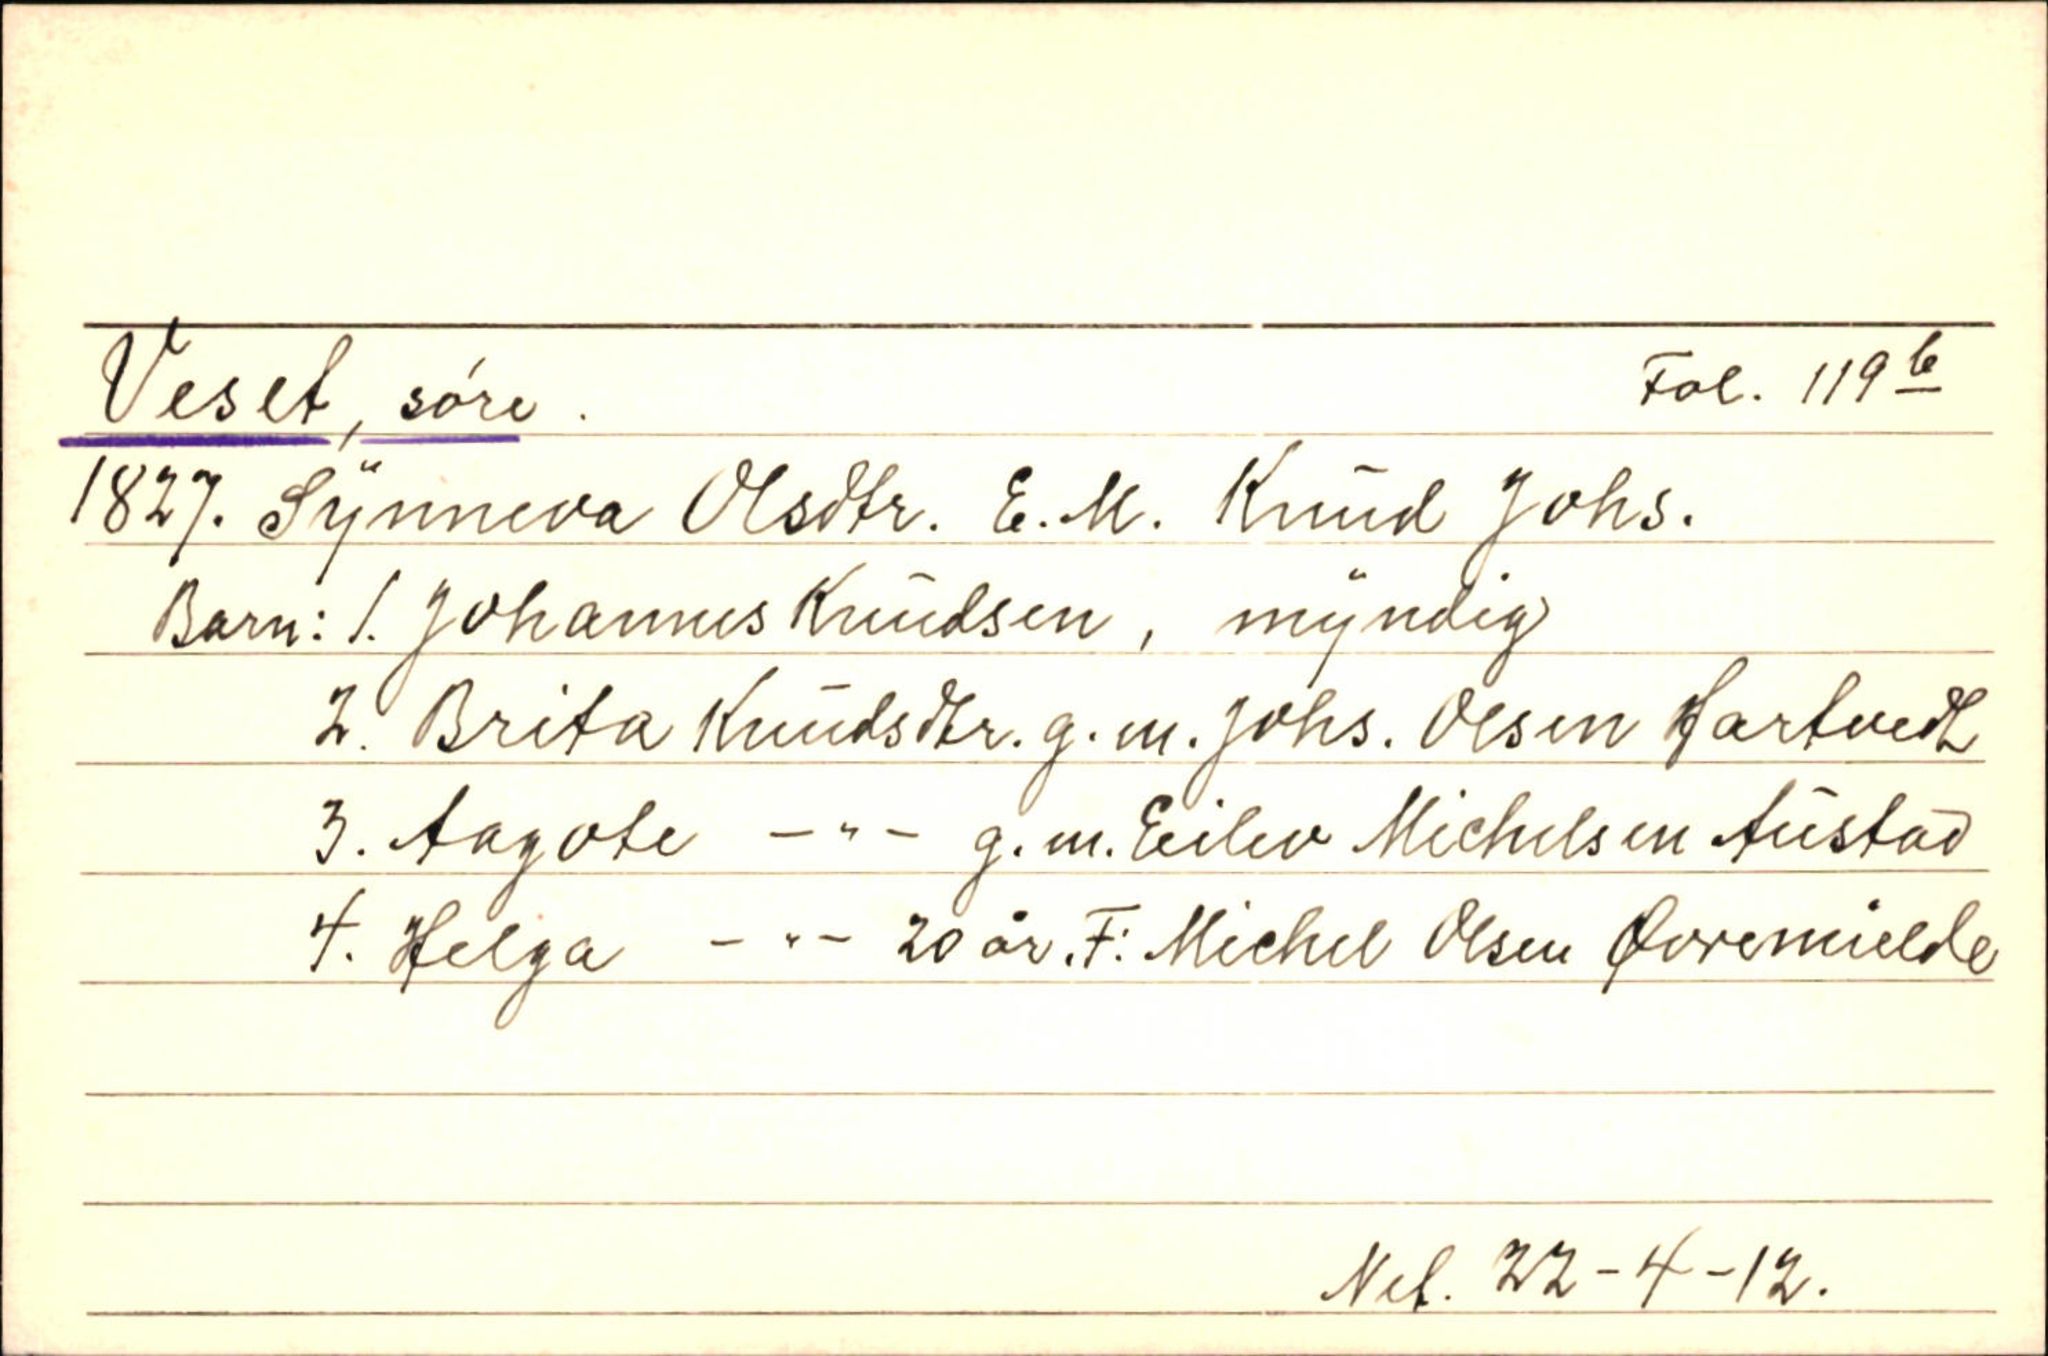 Veset, söre. Fol. 119 b
1827. Sÿnneva Olsdtr. E. M. Knud Johs.
Barn: 1. Johannes Knudsen, mÿndig
2. Brita Knudsdtr. g. m. Johs. Olsen Hartvedt
3. Aagote -"- g. m. Eilev Michelsen Austad
4. Helga -"- 20 år. F: Michel Olsen Øvremielde
Net. 22-4-12.